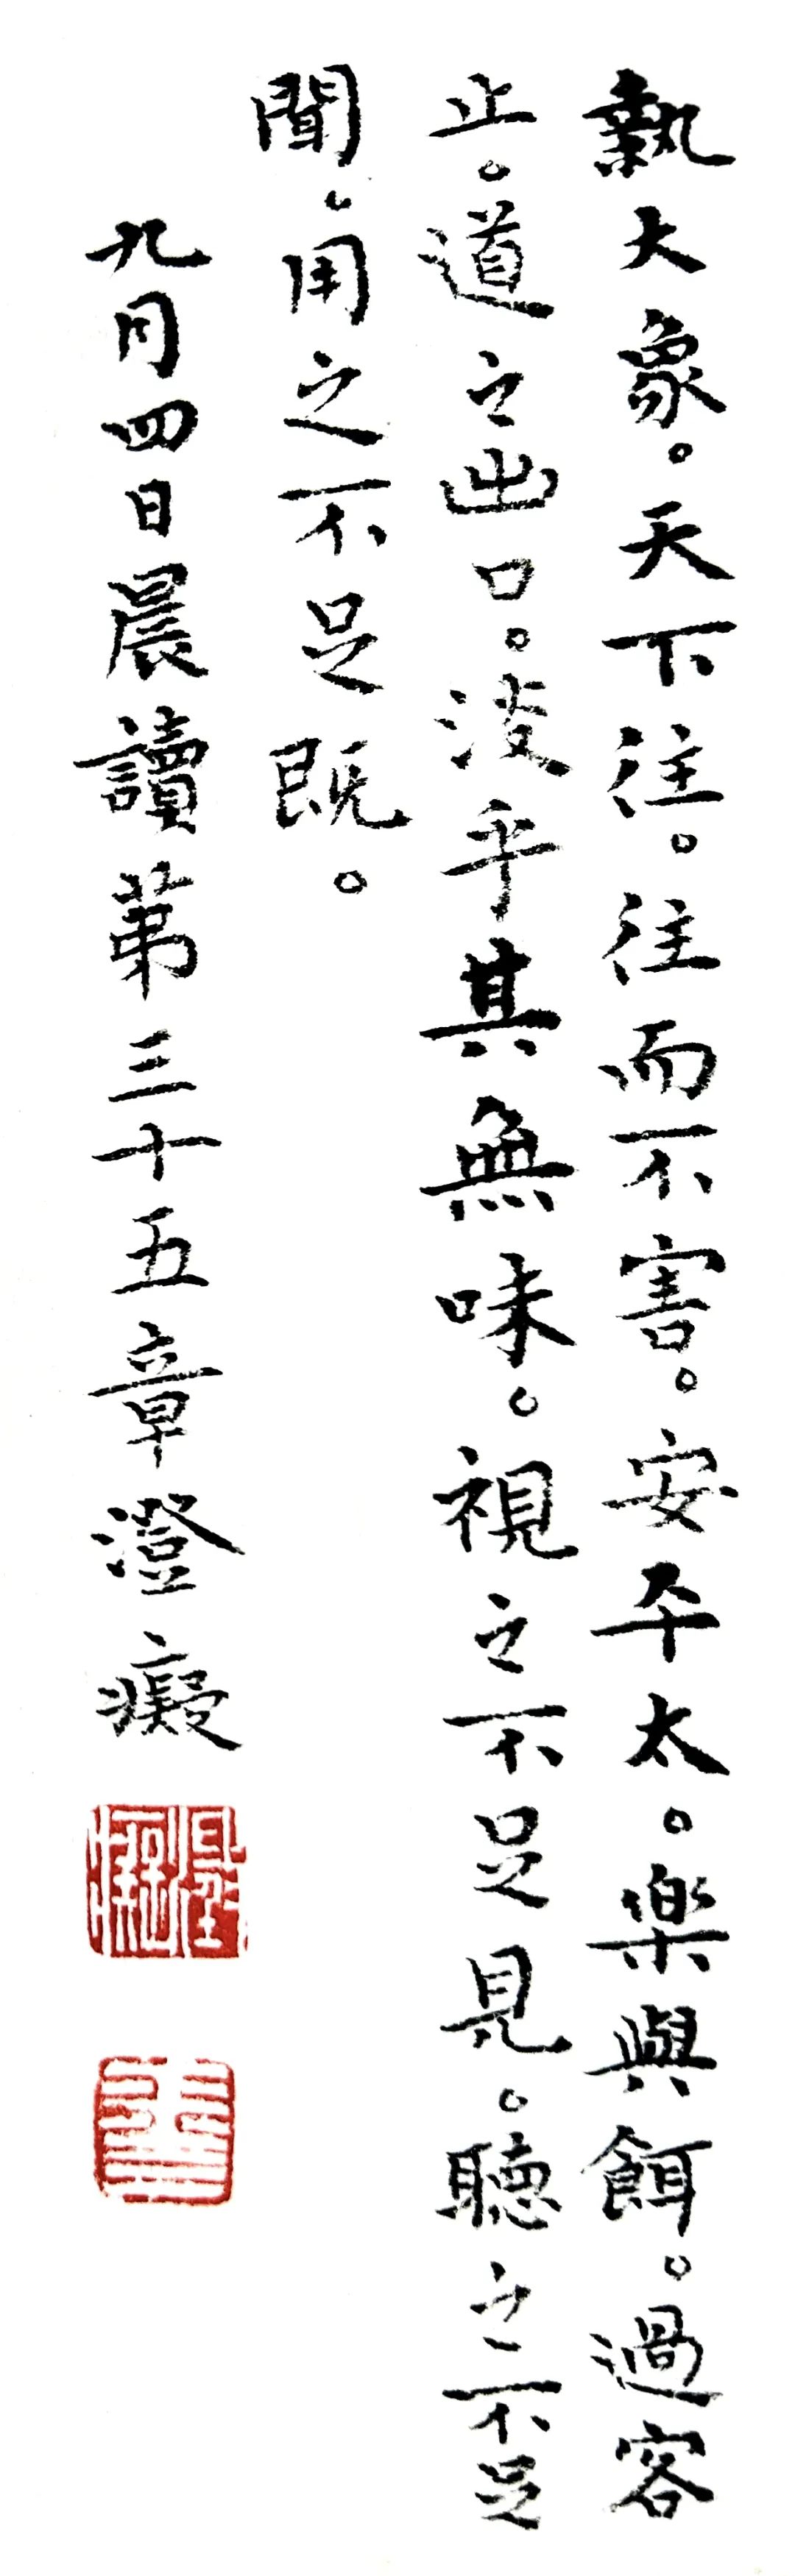 執大象。天下往。往而不害。安平太。樂與餌。過客
止。道之出口。淡乎其無味。視之不足見。聽之不足
聞。用之不足既。
九月四日晨讀第三十五章澄癡
澄癡